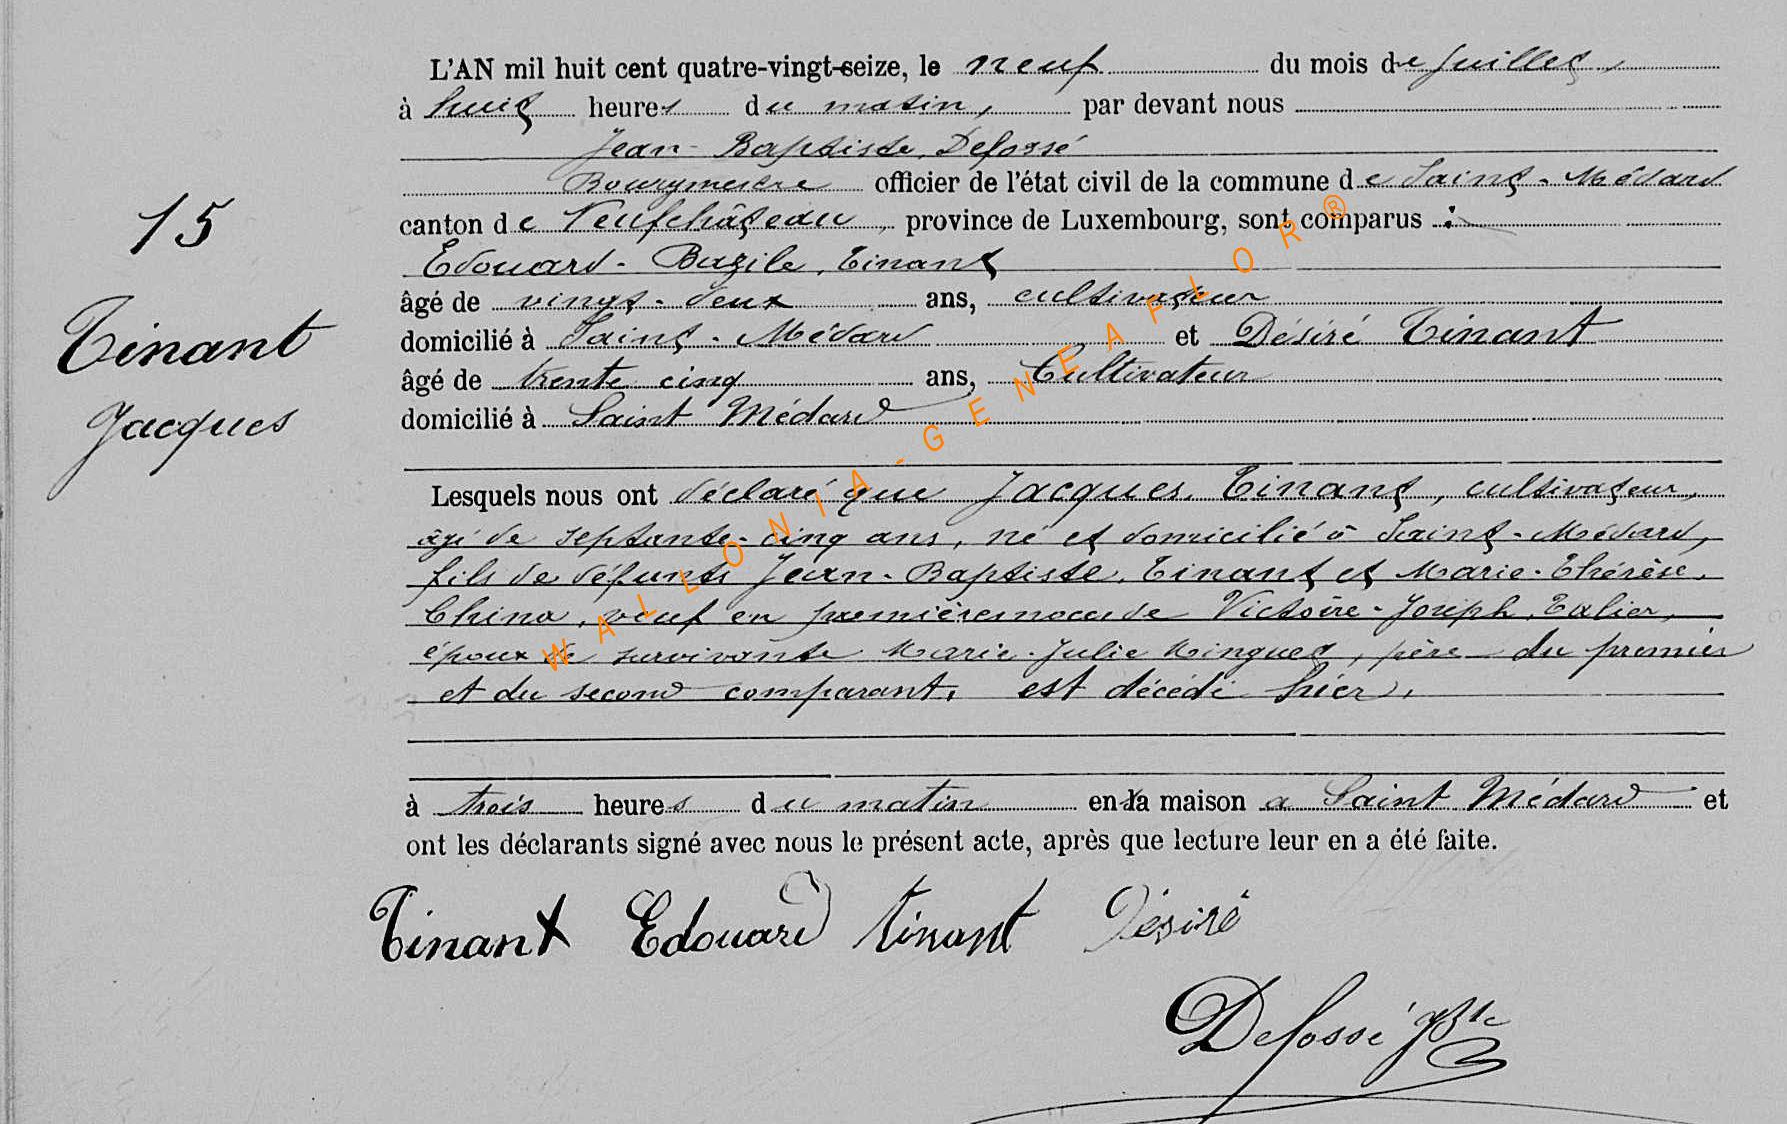 L'AN mil huit cent quatre-vingt-seize, le neuf du mois de Juillet,
à huit heures du matin, par devant nous
Jean-Baptiste, Defossé
Bourgmestre officier de l'état civil de la commune de Saint-Médard
canton de Neufchâteau, province de Luxembourg, sont comparus :
Edouard-Bazile, Tinant
âgé de vingt-deux ans, cultivateur
domicilié à Saint-Médard et Désiré Tinant
âgé de trente cinq ans, Cultivateur
domicilié à Saint Médard
15
Tinant
Jacques
Lesquels nous ont déclaré que Jacques, Tinant, cultivateur,
âgé de septante-cinq ans, né et domicilié à Saint-Médard,
fils de défunts Jean-Baptiste, Tinant et Marie-Thérèse,
China, veuf en premières noces de Victoire-Joseph,
époux de survivante Marie-Julie, père du premier
et du second comparant, est décédé hier,
à trois heures du matin en sa maison a Saint Médard et
ont les déclarants signé avec nous le présent acte, après que lecture leur en a été faite.
Tinant Edouard Tinant Désiré
Defossé JBte
WALLONIA-GENEAFLOR®